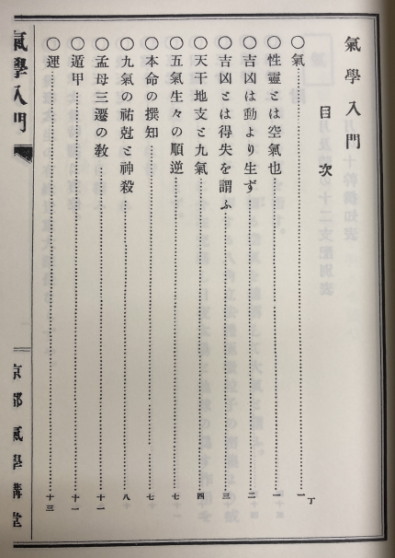 氣學入門
目次
○氣……一丁
○性靈とは空氣也……一
○吉凶は動より生ず……二
○吉凶とは得失を謂ふ……三
○天干地支と九氣……四
○五氣生々の順逆……七
○本命の撰知……七
○九氣の祐尅と神殺……八
○孟母三遷の教……十一
○遁甲……十一
○運……十三
氣學入門
京都 氣學講堂